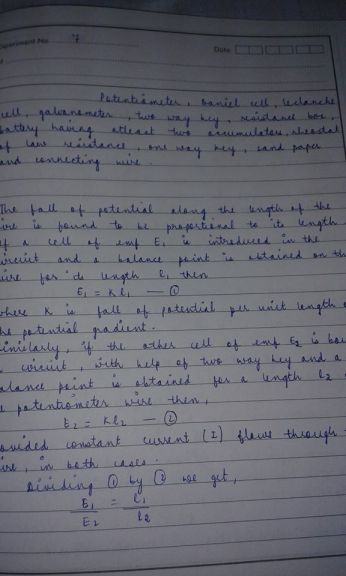 Experiment No. 7
Date
Potentiometer, Daniel cell, Leclanche
cell, galvanometer, two way key, resistance box,
battery having atleast two accumulators, rheostat
of low resistance, one way key, sand paper
and connecting wire.
The fall of potential along the length of the
wire is found to be proportional to its length
If a cell of emf E₁ is introduced in the
circuit and a balance point is obtained on the
wire for its length l₁ then
E₁ = Kl₁ — ①
where K is fall of potential per unit length or
the potential gradient.
Similarly, if the other cell of emf E₂ is
circuit, with help of two way key and a
balance point is obtained for a length l₂ of
potentiometer wire then,
E₂ = Kl₂ — ②
provided constant current (I) flows through
wire, in both cases.
Dividing ① by ② we get,
E₁ = l₁
E₂ l₂